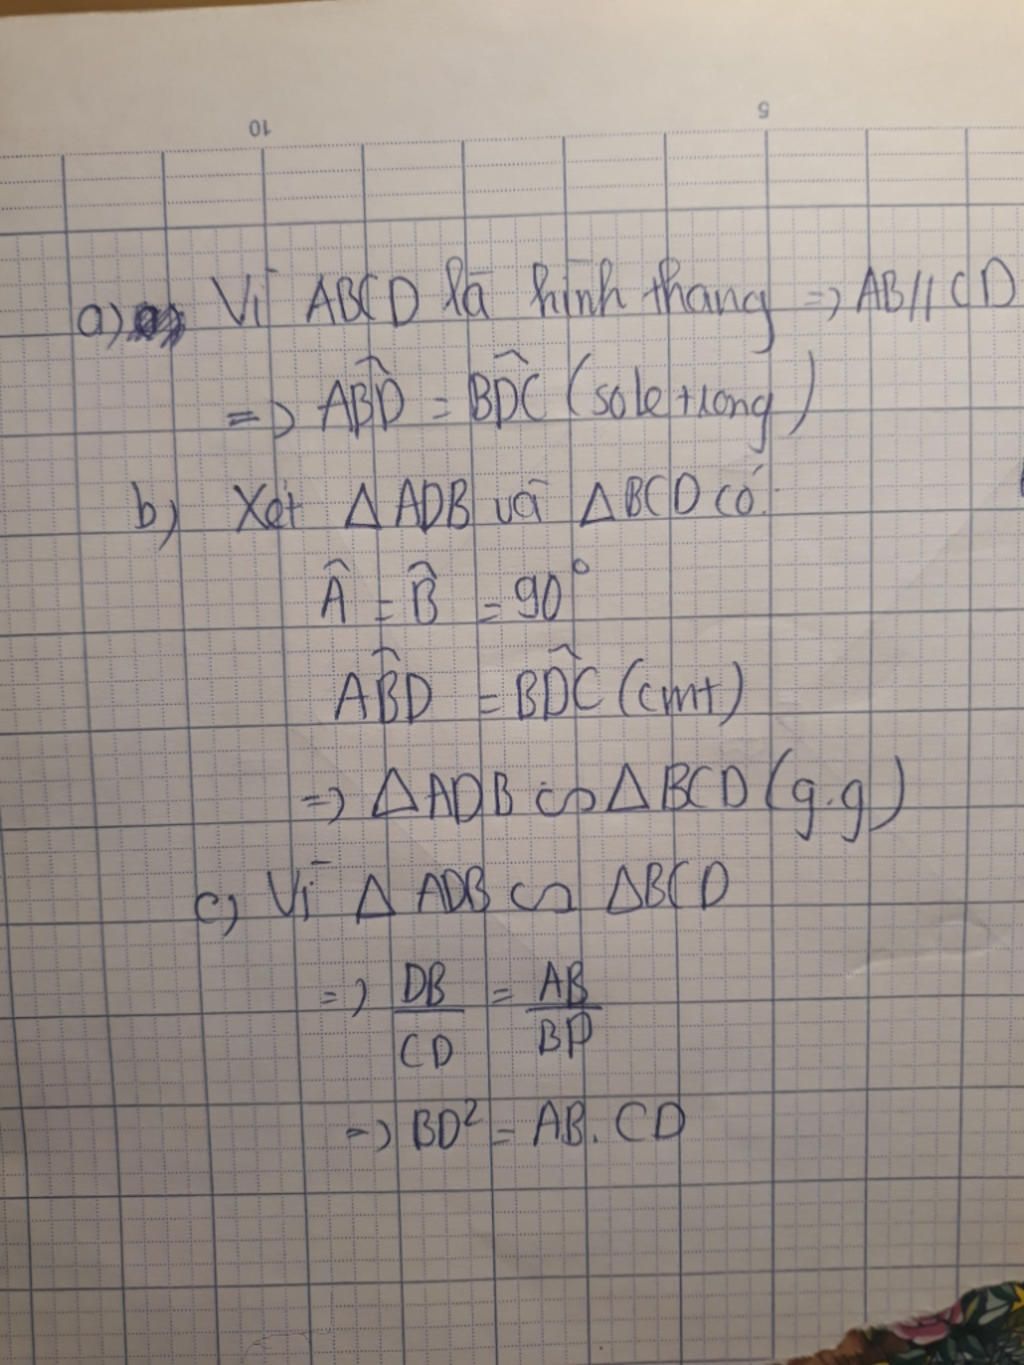 10 5
a) Vì ABCD là hình thang => AB // CD
=> \widehat{ABD} = \widehat{BDC} (so le trong)
b) Xét Δ ADB và Δ BCD có:
\widehat{A} = \widehat{B} = 90°
\widehat{ABD} = \widehat{BDC} (cmt)
=> Δ ADB ∽ Δ BCD (g.g)
c) Vì Δ ADB ∽ Δ BCD
=> \frac{DB}{CD} = \frac{AB}{BD}
=> BD² = AB. CD